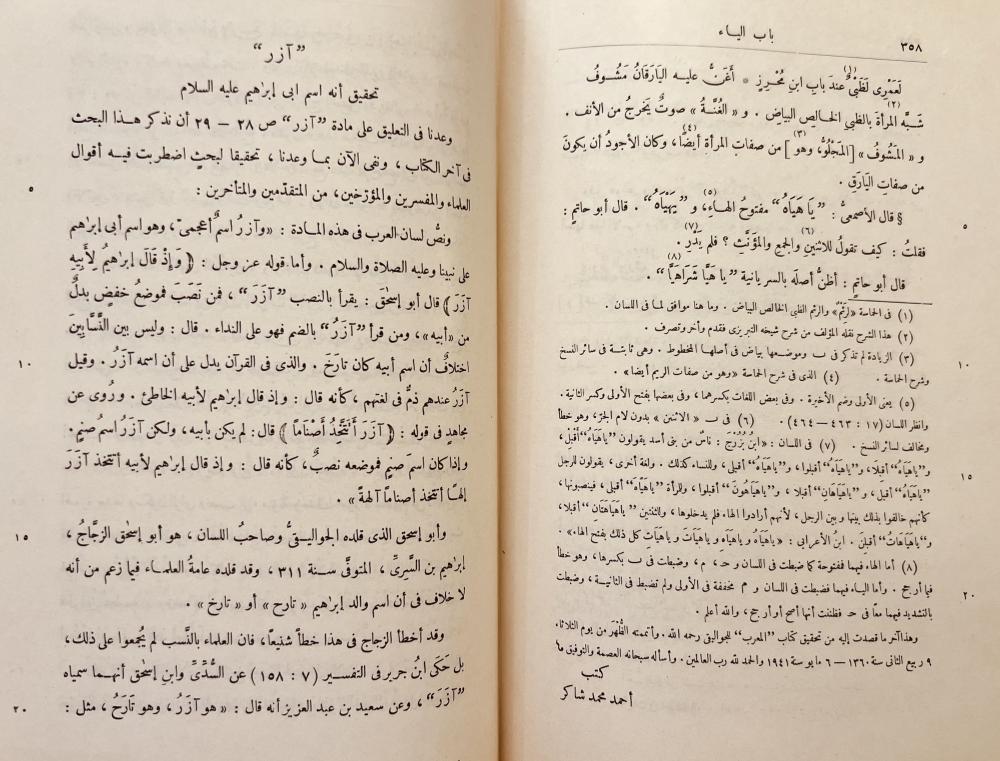 ٣٥٨
باب اليـاء
لَعَمْرِى لَظَبْىٌ عندَ بابِ ابنِ مُحْرِزٍ * أَغَنُّ عليـهِ اليَارَقَانُ مَشُـوفُ
(١)
شَبَّه المرأةَ بالظبي الخـالصِ البياضِ . و « الغُنَّـةُ » صوتٌ يَخرجُ من الأنف .
(٢)
و « المَشُوفُ » [المَجْلُوُّ، وهو] من صفاتِ المرأةِ أيضًا، وكان الأجودُ أن يكونَ
(٣) (٤)
من صفاتِ اليَارَقِ .
§ قال الأصمعىُّ : ”يَا هَيَاهُ“ مفتوحُ الهـاءِ، و ”يَهْيَاهُ“ . قال أبو حاتمٍ :
(٥)
فقلتُ : كيف تقولُ للاثنينِ والجمعِ والمؤنَّثِ ؟ فلم يَدْرِ .
(٦) (٧)
قال أبو حاتم : أظنُّ أصلَه بالسريانية ”يا هَيَّا شَرَاهَيَّا“ .
(٨)
(١) فى الحماسة «لَرِئْمٌ» والرئم الظبى الخالص البياض . وما هنا موافق لمـا فى اللسان .
(٢) هذا الشرح نقله المؤلف من شرح شيخه التبريزى فقدم وأخر وتصرف .
(٣) الزيادة لم تذكر فى ب وموضعها بياض فى أصلها المخطوط . وهى ثابتـة فى سائر النسخ
وشرح الحماسة . (٤) الذى فى شرح الحماسة «وهو من صفات الريم أيضا» .
(٥) يعنى الأولى وضم الأخيرة . وفى بعض اللغات بكسرهما، وفى بعضها بفتح الأولى وكسر الثانية .
وانظر اللسان (١٧ : ٤٦٣-٤٦٤) . (٦) فى ب « الاثنين » بدون لام الجرّ، وهو خطأ
ومخالف لسائر النسخ . (٧) فى اللسان : «ابنُ بُزُرْجَ : ناسٌ من بنى أسد يقولون ”ياهَيَاهُ“ أَقْبِلْ،
و”ياهَيَاهُ“ أقبلا، و”ياهَيَاهُ“ أقبلوا، و”ياهَيَاهُ“ أقبلى، وللنساء كذلك . ولغة أخرى، يقولون للرجل
”ياهَيَاهُ“ أقبل، و ”ياهَيَاهَانِ“ أقبلا ، و ”ياهَيَاهُونَ“ أقبلوا، وللمرأة ”ياهَيَاهَ“ أقبلى، فينصبونها،
كأنهم خالفوا بذلك بينها وبين الرجل، لأنهم أرادوا الهاء فلم يدخلوها، وللثنتين ”ياهَيَاهَتَانِ“ أقبلا،
و”ياهَيَاهَاتُ“ أقبلن . ابنُ الأعرابى : «ياهَيَاهُ وياهَيَاهِ وياهَيَاتَ وياهَيَاتِ كل ذلك بفتح الهاء» .
(٨) أما الهاء فيهما فمفتوحة كما ضبطت فى اللسان و حـ ، م ، وضبطت فى ب بكسرها، وهو خطأ
فيما أرجح . وأما الياء فيهما فضبطت فى اللسان و م مخففة فى الأولى ولم تضبط فى الثانيـة ، وضبطت
بالتشديد فيهما معًا فى حـ فظننت أنها أصح أو أرجح، والله أعلم .
وهذا آخر ما قصدت إليه من تحقيق كتاب ”المعرب“ للجواليق رحمه الله . وأتممته الظُّهْرَ من يوم الثلاثاء
٩ ربيع الثانى سنة ١٣٦٠ - ٦ مايو سنة ١٩٤١ والحمد لله رب العالمين . وأسأله سبحانه العصمة والتوفيق م؟
كتب
أحمد محمد شاكر
٥
١٠
١٥
٢٠
”آزر“
تحقيق أنه اسم ابى إبرٰهيم عليه السلام
وعدنا فى التعليق على مادة ”آزر“ ص ٢٨ — ٢٩ أن نذكر هـذا البحث
فى آخر الكتاب ، ونفى الآن بمـا وعدنا ، تحقيقا لبحثٍ اضطربت فيـه أقوال
العلماء والمفسرين والمؤرّخين، من المتقدّمين والمتأخرين :
ونصُّ لسان العرب فى هذه المـادة : «وآزرُ اسمٌ أعجمىّ، وهو اسم أبى إبرٰهيم
على نبينا وعليه الصلاة والسلام . وأما قوله عز وجل : ﴿ وَإِذْ قَالَ إبرٰهيمُ لِأَبِيهِ
آزَرَ ﴾ قال أبو إسحٰقَ : يقرأ بالنصب ”آزَرَ“ ، فمن نَصَبَ فموضعُ خفضٍ بدلٌ
من «أبيه» ، ومن قرأ ”آزَرُ“ بالضم فهو على النداء . قال : وليس بين النَّسَّابِينَ
اختلافٌ أن اسم أبيه كان تارَخَ . والذى فى القرآن يدل على أن اسمه آزَرُ . وقيل
آزرُ عندهم ذمٌّ فى لغتهم ، كأنه قال : وإذ قال إبرٰهيم لأبيه الخاطئ . ورُوى عن
مجاهدٍ فى قوله : ﴿ آزَرَ أَتَتَّخِذُ أَصْنَامًا ﴾ قال : لم يكن بأبيه، ولكن آزَرُ اسمُ صنمٍ.
وإذا كان اسمَ صنمٍ فموضعه نصبٌ، كأنه قال : وإذ قال إبرٰهيم لأبيه أتتخذ آزَرَ
إلٰهًا أتتخذ أصنامًا آلهةً » .
وأبو إسحٰق الذى قلده الجواليقىُّ وصاحبُ اللسان ، هو أبو إسحٰقَ الزجَّاجُ ،
إبرٰهيم بن السَّرِىِّ ، المتوفَّى سـنة ٣١١ ، وقد قلده عامةُ العلمـاء فيما زعم من أنه
لا خلاف فى أن اسم والد إبرٰهيم « تارح » أو « تارخ » .
وقد أخطأ الزجاج فى هذا خطأ شنيعًا، فان العلماء بالنَّسب لم يُجمعوا على ذلك،
بل حَكَى ابنُ جرير فى التفسـير (٧ : ١٥٨) عن السُّدِّىِّ وابنِ إسحٰق أنهـما سمياه
”آزَرَ“، وعن سعيد بن عبد العزيز أنه قال : «هو آزَرُ ، وهو تارَحُ ، مثل :
٥
١٠
١٥
٢٠